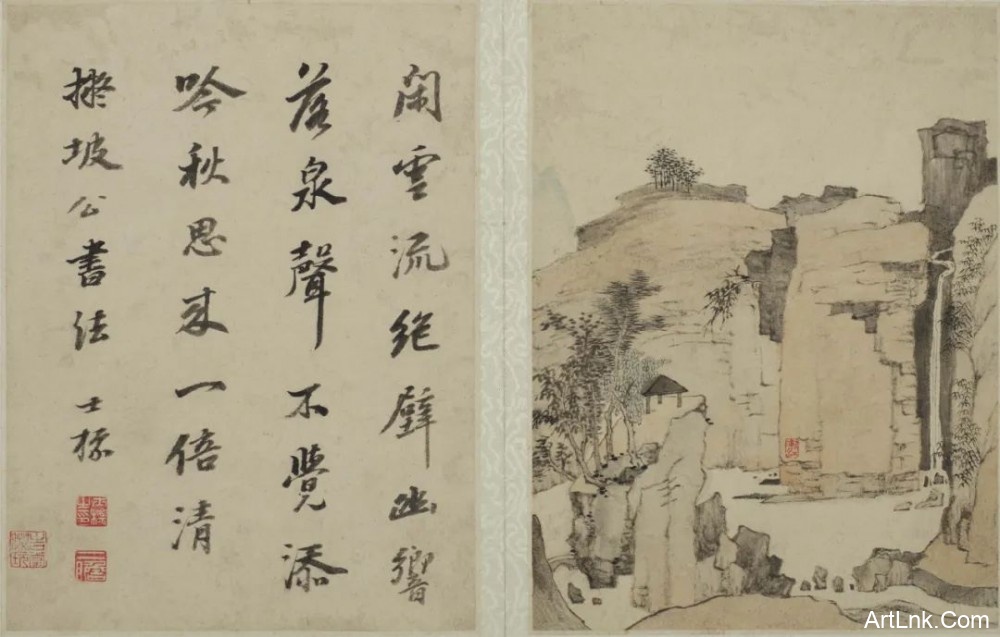 閑雲流絕壁幽響
落泉聲不覺添
吟秋思來一倍清
擬坡公書法 士標
ArtLnk.Com